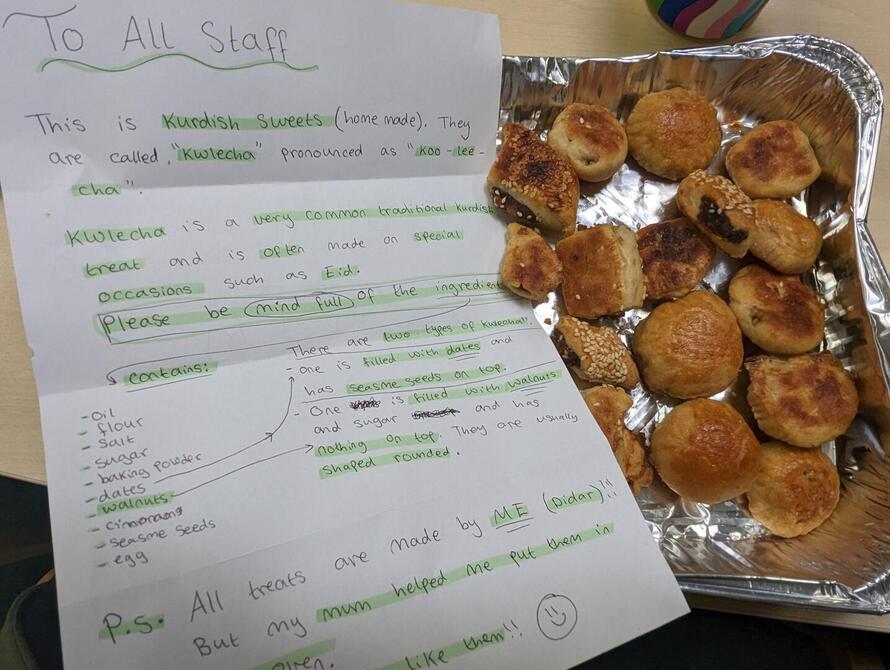 To All Staff
This is Kurdish Sweets (home made). They
are called "Kwlecha" pronounced as "Koo-lee-
cha".
Kwlecha is a very common traditional Kurdish
treat and is often made on special
occasions such as Eid.
Please be mind full of the ingredient
contains:
- oil
- flour
- salt
- sugar
- baking powder
- dates
- walnuts
- cinomons
- seasme seeds
- egg
There are two types of Kwlecha!!
- one is filled with dates and
has seasme seeds on top.
- One is filled with walnuts
and sugar and has
nothing on top. They are usually
shaped rounded.
P.S. All treats are made by ME (Didar)!!
But my mum helped me put them in
oven. like them!!